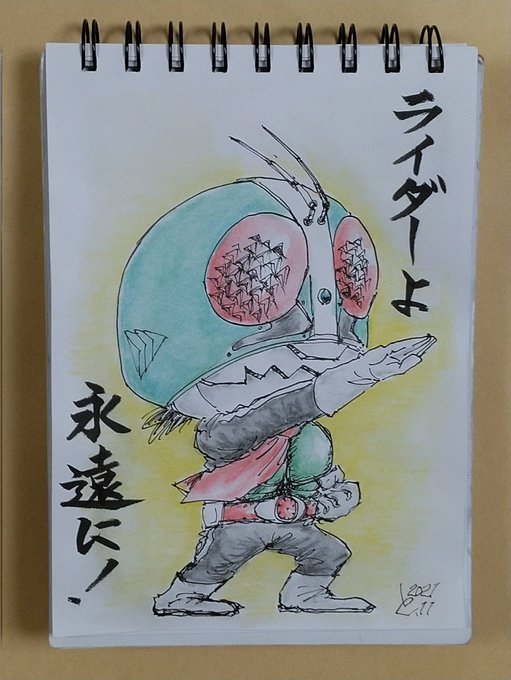 ライダーよ
永遠に!
2021